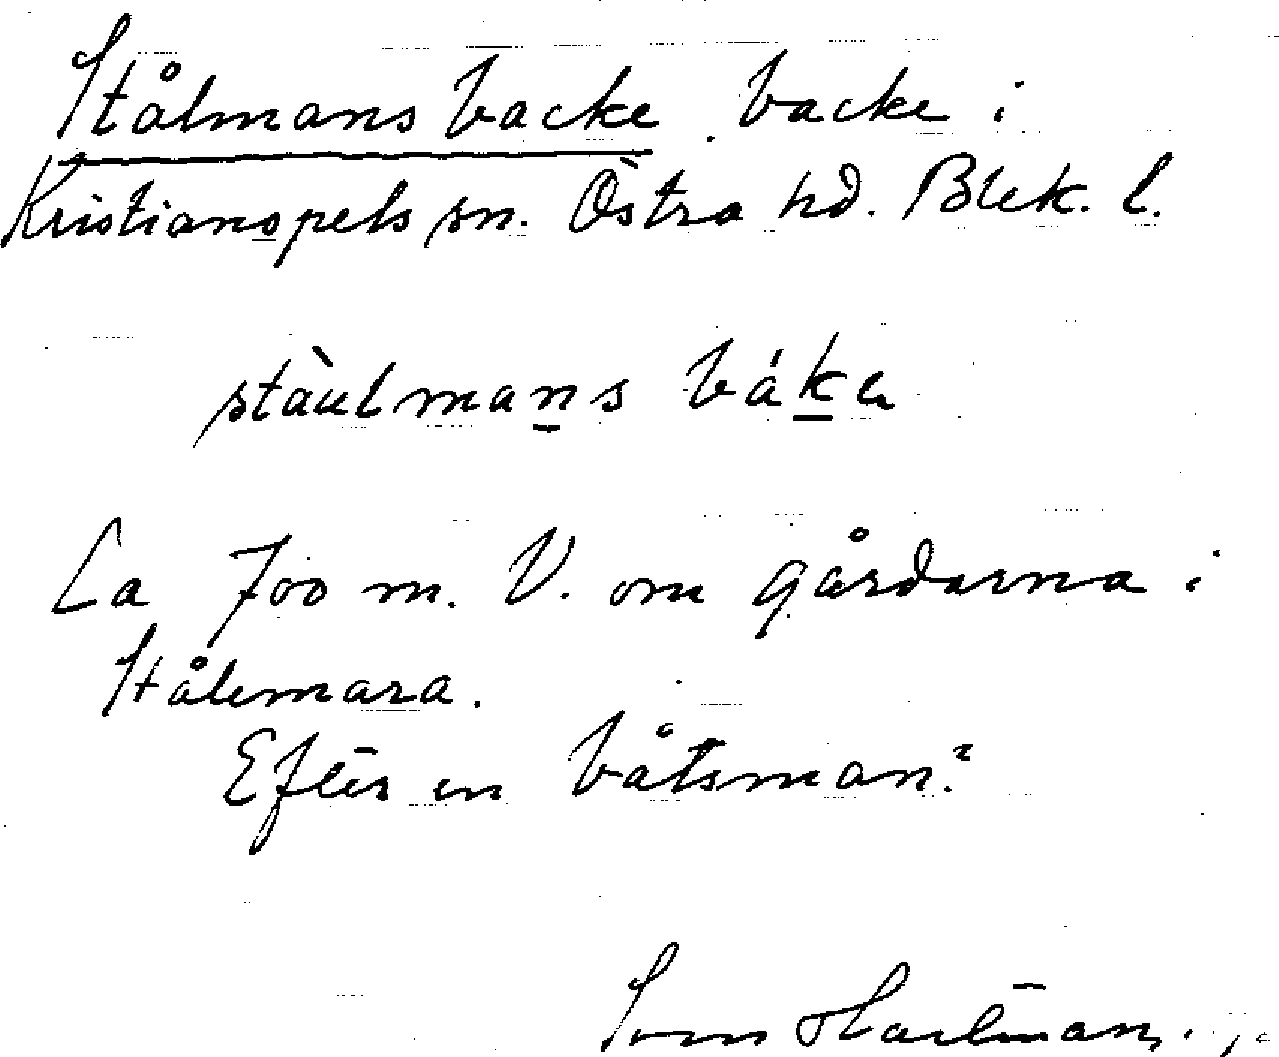 Stålmans backe, backe i
Kristianopels sn. Östra hd. Blek. l.
stàulmans bákɐ
Ca 700 m. V. om gårdarna i
Stålemara.
Efter en båtsman?
Sven Hartman.